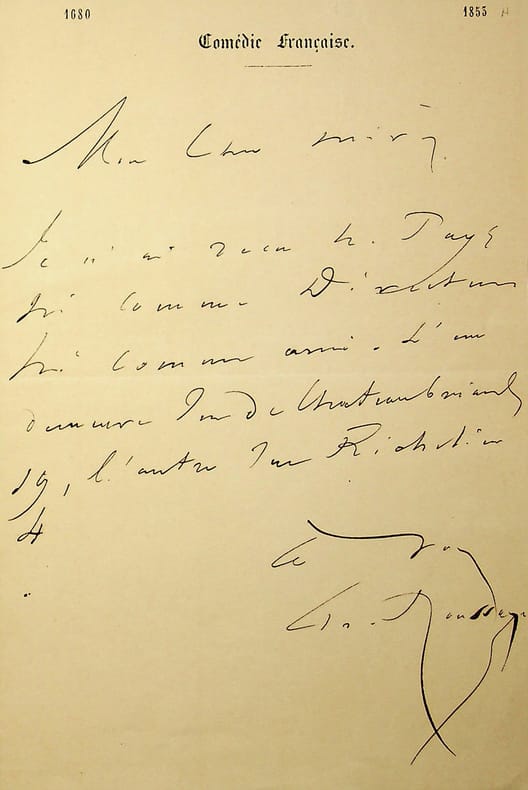 1680 1855
Comédie Française.
Mon Cher
Je n'ai vu M. Page
ni comme Directeur
ni comme ami. L'un
demeure rue de Chateaubriand
19, l'autre rue Richelieu
4